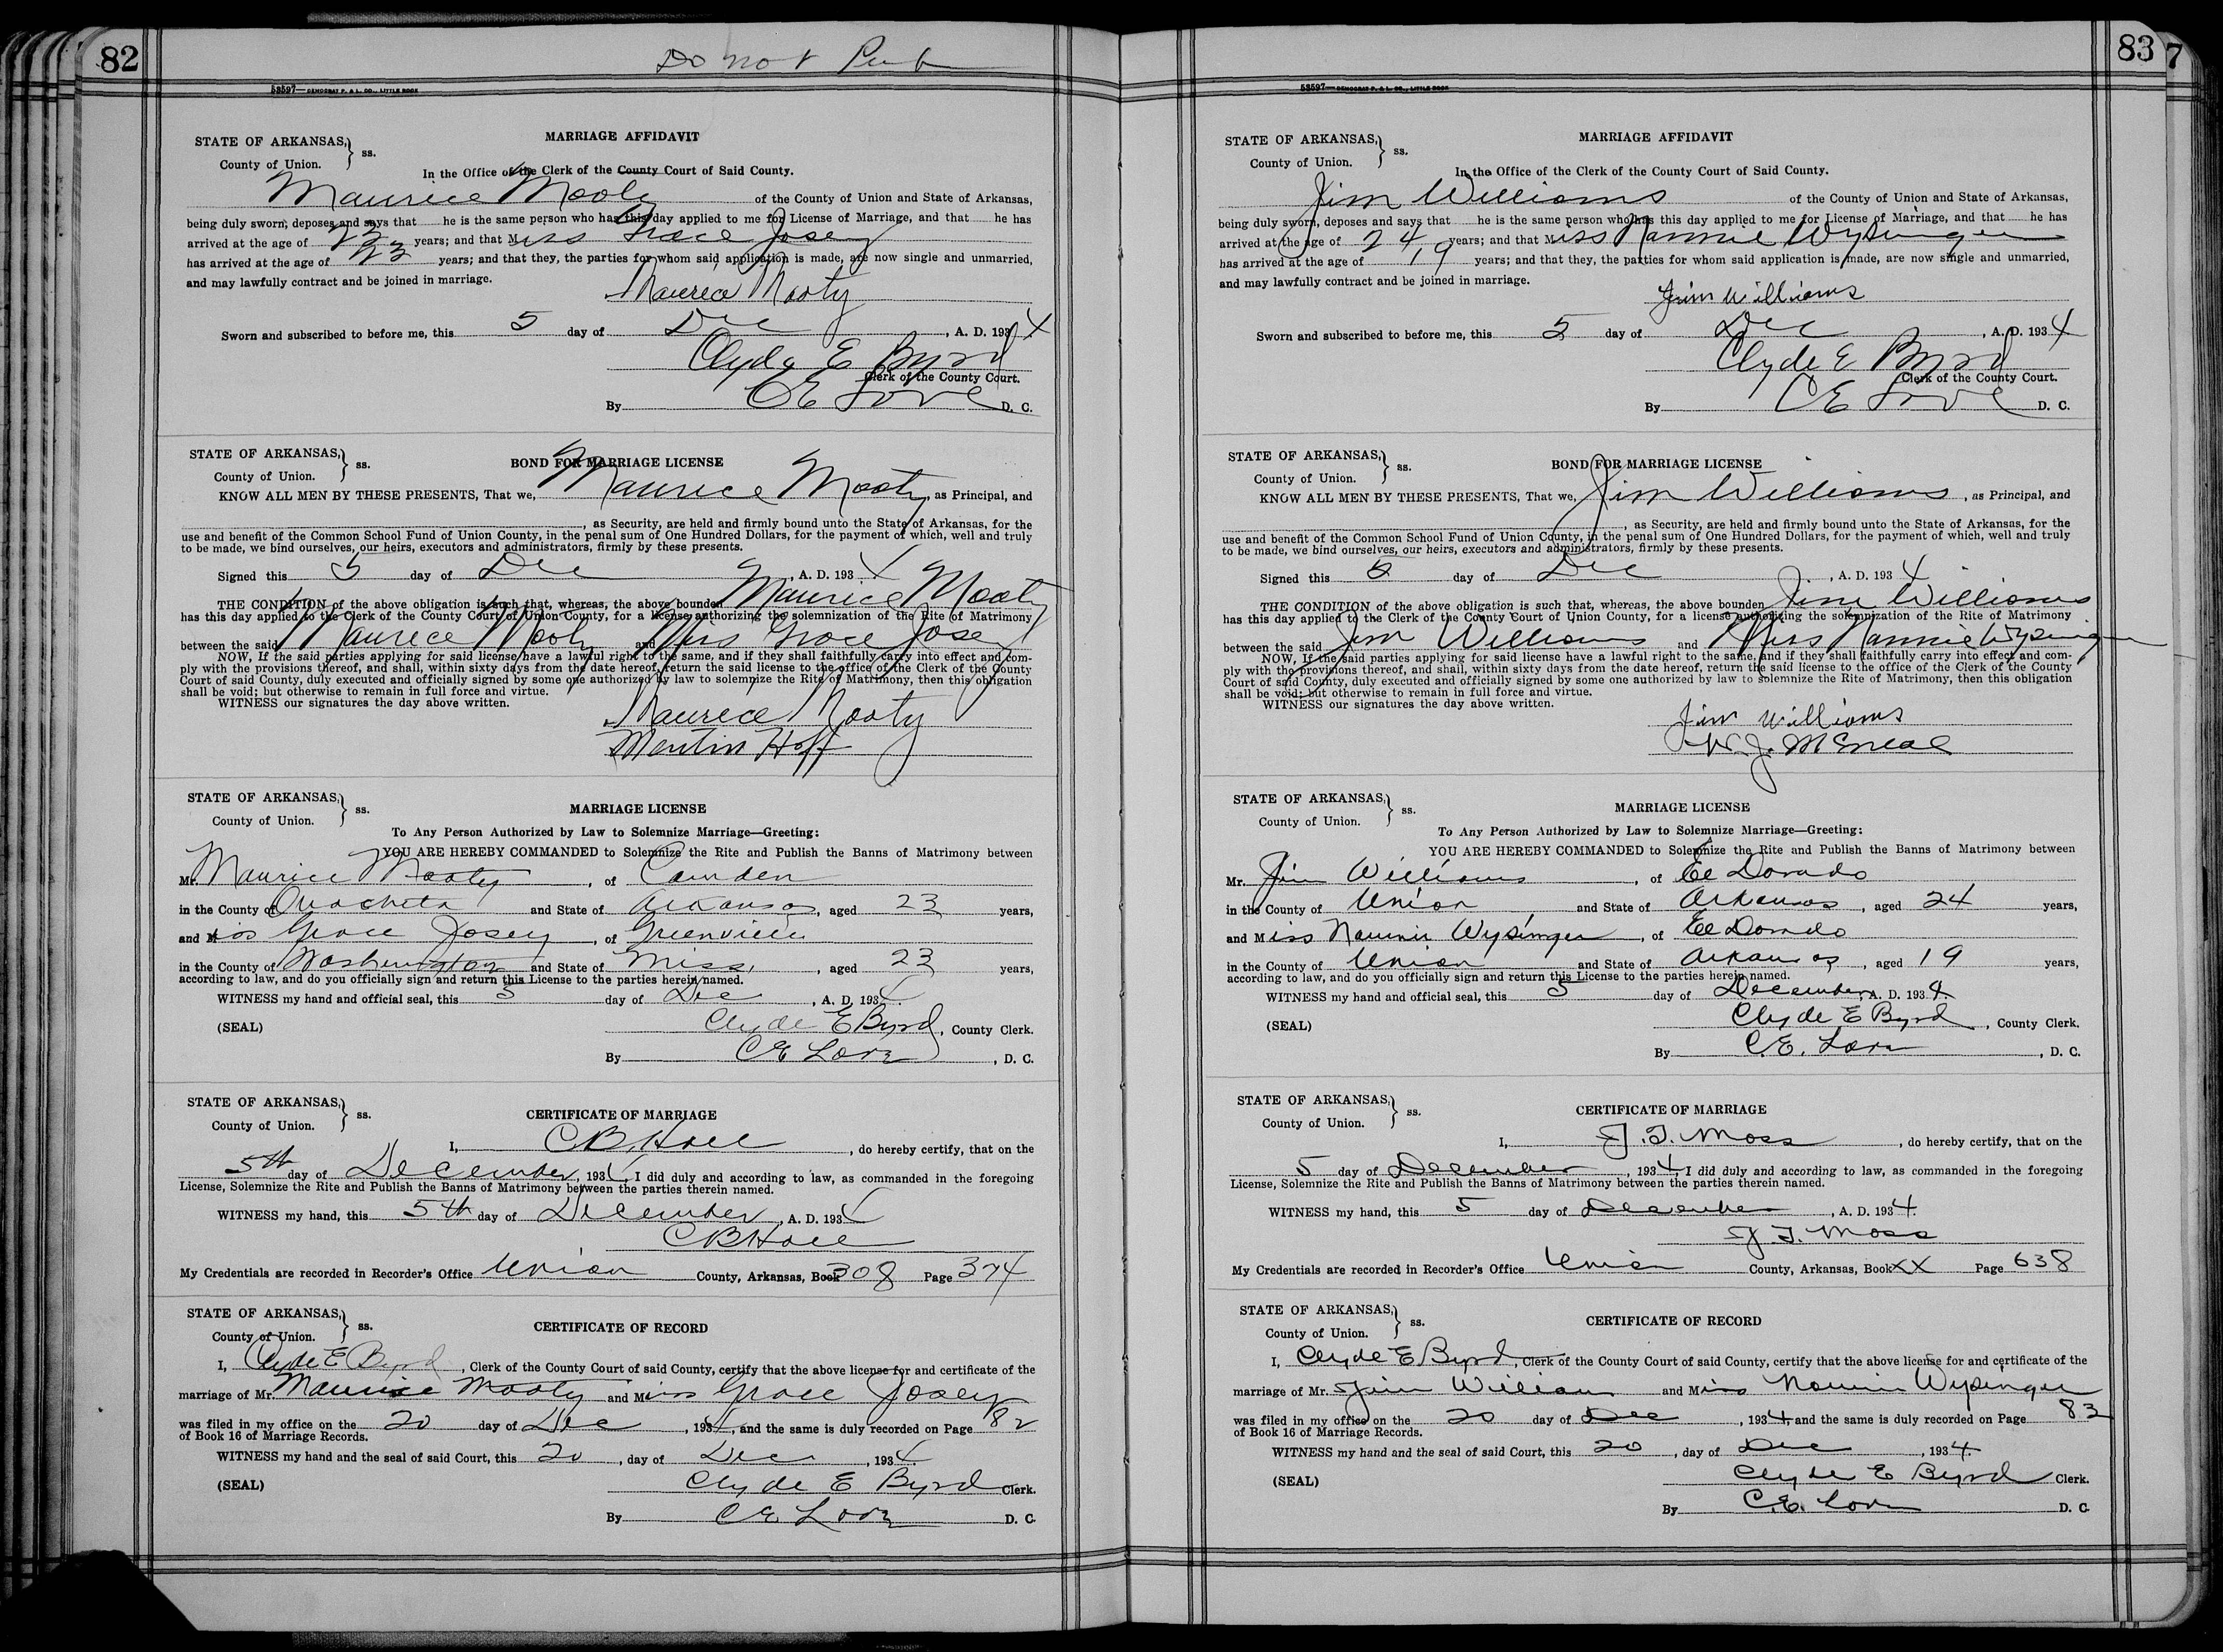 82
Do not Pub
53597—DEMOCRAT P. & L. CO., LITTLE ROCK
MARRIAGE AFFIDAVIT
STATE OF ARKANSAS,
County of Union. } ss.
In the Office of the Clerk of the County Court of Said County.
Maurice Mooty of the County of Union and State of Arkansas,
being duly sworn, deposes and says that he is the same person who has this day applied to me for License of Marriage, and that he has
arrived at the age of 23 years; and that Miss Grace Josey
has arrived at the age of 23 years; and that they, the parties for whom said application is made, are now single and unmarried,
and may lawfully contract and be joined in marriage.
Maurice Mooty
Sworn and subscribed to before me, this 5 day of Dec, A. D. 1934
Clyde E Byrd
Clerk of the County Court.
By C E Love D. C.
STATE OF ARKANSAS,
County of Union. } ss.
BOND FOR MARRIAGE LICENSE
KNOW ALL MEN BY THESE PRESENTS, That we, Maurice Mooty, as Principal, and
, as Security, are held and firmly bound unto the State of Arkansas, for the
use and benefit of the Common School Fund of Union County, in the penal sum of One Hundred Dollars, for the payment of which, well and truly
to be made, we bind ourselves, our heirs, executors and administrators, firmly by these presents.
Signed this 5 day of Dec, A. D. 1934
THE CONDITION of the above obligation is such that, whereas, the above bounden Maurice Mooty
has this day applied to the Clerk of the County Court of Union County, for a license authorizing the solemnization of the Rite of Matrimony
between the said Maurice Mooty and Miss Grace Josey
NOW, If the said parties applying for said license have a lawful right to the same, and if they shall faithfully carry into effect and com-
ply with the provisions thereof, and shall, within sixty days from the date hereof, return the said license to the office of the Clerk of the County
Court of said County, duly executed and officially signed by some one authorized by law to solemnize the Rite of Matrimony, then this obligation
shall be void; but otherwise to remain in full force and virtue.
WITNESS our signatures the day above written.
Maurice Mooty
Hoff
STATE OF ARKANSAS,
County of Union. } ss.
MARRIAGE LICENSE
To Any Person Authorized by Law to Solemnize Marriage—Greeting:
YOU ARE HEREBY COMMANDED to Solemnize the Rite and Publish the Banns of Matrimony between
Mr. Maurice Mooty, of Camden
in the County of Ouachita and State of Arkansas, aged 23 years,
and Miss Grace Josey, of Greenville
in the County of Washington and State of Miss, aged 23 years,
according to law, and do you officially sign and return this License to the parties herein named.
WITNESS my hand and official seal, this 5 day of Dec, A. D. 1934
(SEAL) Clyde E Byrd, County Clerk.
By C E Love, D. C.
STATE OF ARKANSAS,
County of Union. } ss.
CERTIFICATE OF MARRIAGE
I, C B Hall, do hereby certify, that on the
5th day of December, 1934, I did duly and according to law, as commanded in the foregoing
License, Solemnize the Rite and Publish the Banns of Matrimony between the parties therein named.
WITNESS my hand, this 5th day of December, A. D. 1934
C B Hall
My Credentials are recorded in Recorder's Office Union County, Arkansas, Book 308 Page 374
STATE OF ARKANSAS,
County of Union. } ss.
CERTIFICATE OF RECORD
I, Clyde E Byrd, Clerk of the County Court of said County, certify that the above license for and certificate of the
marriage of Mr. Maurice Mooty and Miss Grace Josey
was filed in my office on the 20 day of Dec, 1934, and the same is duly recorded on Page 82
of Book 16 of Marriage Records.
WITNESS my hand and the seal of said Court, this 20, day of Dec, 1934
(SEAL) Clyde E Byrd Clerk.
By C E Love D. C.
83
7
53597—DEMOCRAT P. & L. CO., LITTLE ROCK
MARRIAGE AFFIDAVIT
STATE OF ARKANSAS,
County of Union. } ss.
In the Office of the Clerk of the County Court of Said County.
Jim Williams of the County of Union and State of Arkansas,
being duly sworn, deposes and says that he is the same person who has this day applied to me for License of Marriage, and that he has
arrived at the age of 24 years; and that Miss Nannie Wysinger
has arrived at the age of 19 years; and that they, the parties for whom said application is made, are now single and unmarried,
and may lawfully contract and be joined in marriage.
Jim Williams
Sworn and subscribed to before me, this 5 day of Dec, A. D. 1934
Clyde E Byrd
Clerk of the County Court.
By C E Love D. C.
STATE OF ARKANSAS,
County of Union. } ss.
BOND FOR MARRIAGE LICENSE
KNOW ALL MEN BY THESE PRESENTS, That we, Jim Williams, as Principal, and
, as Security, are held and firmly bound unto the State of Arkansas, for the
use and benefit of the Common School Fund of Union County, in the penal sum of One Hundred Dollars, for the payment of which, well and truly
to be made, we bind ourselves, our heirs, executors and administrators, firmly by these presents.
Signed this 5 day of Dec, A. D. 1934
THE CONDITION of the above obligation is such that, whereas, the above bounden Jim Williams
has this day applied to the Clerk of the County Court of Union County, for a license authorizing the solemnization of the Rite of Matrimony
between the said Jim Williams and Miss Nannie Wysinger
NOW, If the said parties applying for said license have a lawful right to the same, and if they shall faithfully carry into effect and com-
ply with the provisions thereof, and shall, within sixty days from the date hereof, return the said license to the office of the Clerk of the County
Court of said County, duly executed and officially signed by some one authorized by law to solemnize the Rite of Matrimony, then this obligation
shall be void; but otherwise to remain in full force and virtue.
WITNESS our signatures the day above written.
Jim Williams
W. J. McNeal
STATE OF ARKANSAS,
County of Union. } ss.
MARRIAGE LICENSE
To Any Person Authorized by Law to Solemnize Marriage—Greeting:
YOU ARE HEREBY COMMANDED to Solemnize the Rite and Publish the Banns of Matrimony between
Mr. Jim Williams, of El Dorado
in the County of Union and State of Arkansas, aged 24 years,
and Miss Nannie Wysinger, of El Dorado
in the County of Union and State of Arkansas, aged 19 years,
according to law, and do you officially sign and return this License to the parties herein named.
WITNESS my hand and official seal, this 5 day of December, A. D. 1934.
(SEAL) Clyde E Byrd, County Clerk.
By C.E. Love, D. C.
STATE OF ARKANSAS,
County of Union. } ss.
CERTIFICATE OF MARRIAGE
I, J. T. Moss, do hereby certify, that on the
5 day of December, 1934, I did duly and according to law, as commanded in the foregoing
License, Solemnize the Rite and Publish the Banns of Matrimony between the parties therein named.
WITNESS my hand, this 5 day of December, A. D. 1934.
J. T. Moss
My Credentials are recorded in Recorder's Office Union County, Arkansas, Book XX Page 638
STATE OF ARKANSAS,
County of Union. } ss.
CERTIFICATE OF RECORD
I, Clyde E Byrd, Clerk of the County Court of said County, certify that the above license for and certificate of the
marriage of Mr. Jim William and Miss Nannie Wysinger
was filed in my office on the 20 day of Dec, 1934, and the same is duly recorded on Page 83
of Book 16 of Marriage Records.
WITNESS my hand and the seal of said Court, this 20, day of Dec, 1934.
(SEAL) Clyde E Byrd Clerk.
By C.E. Love D. C.